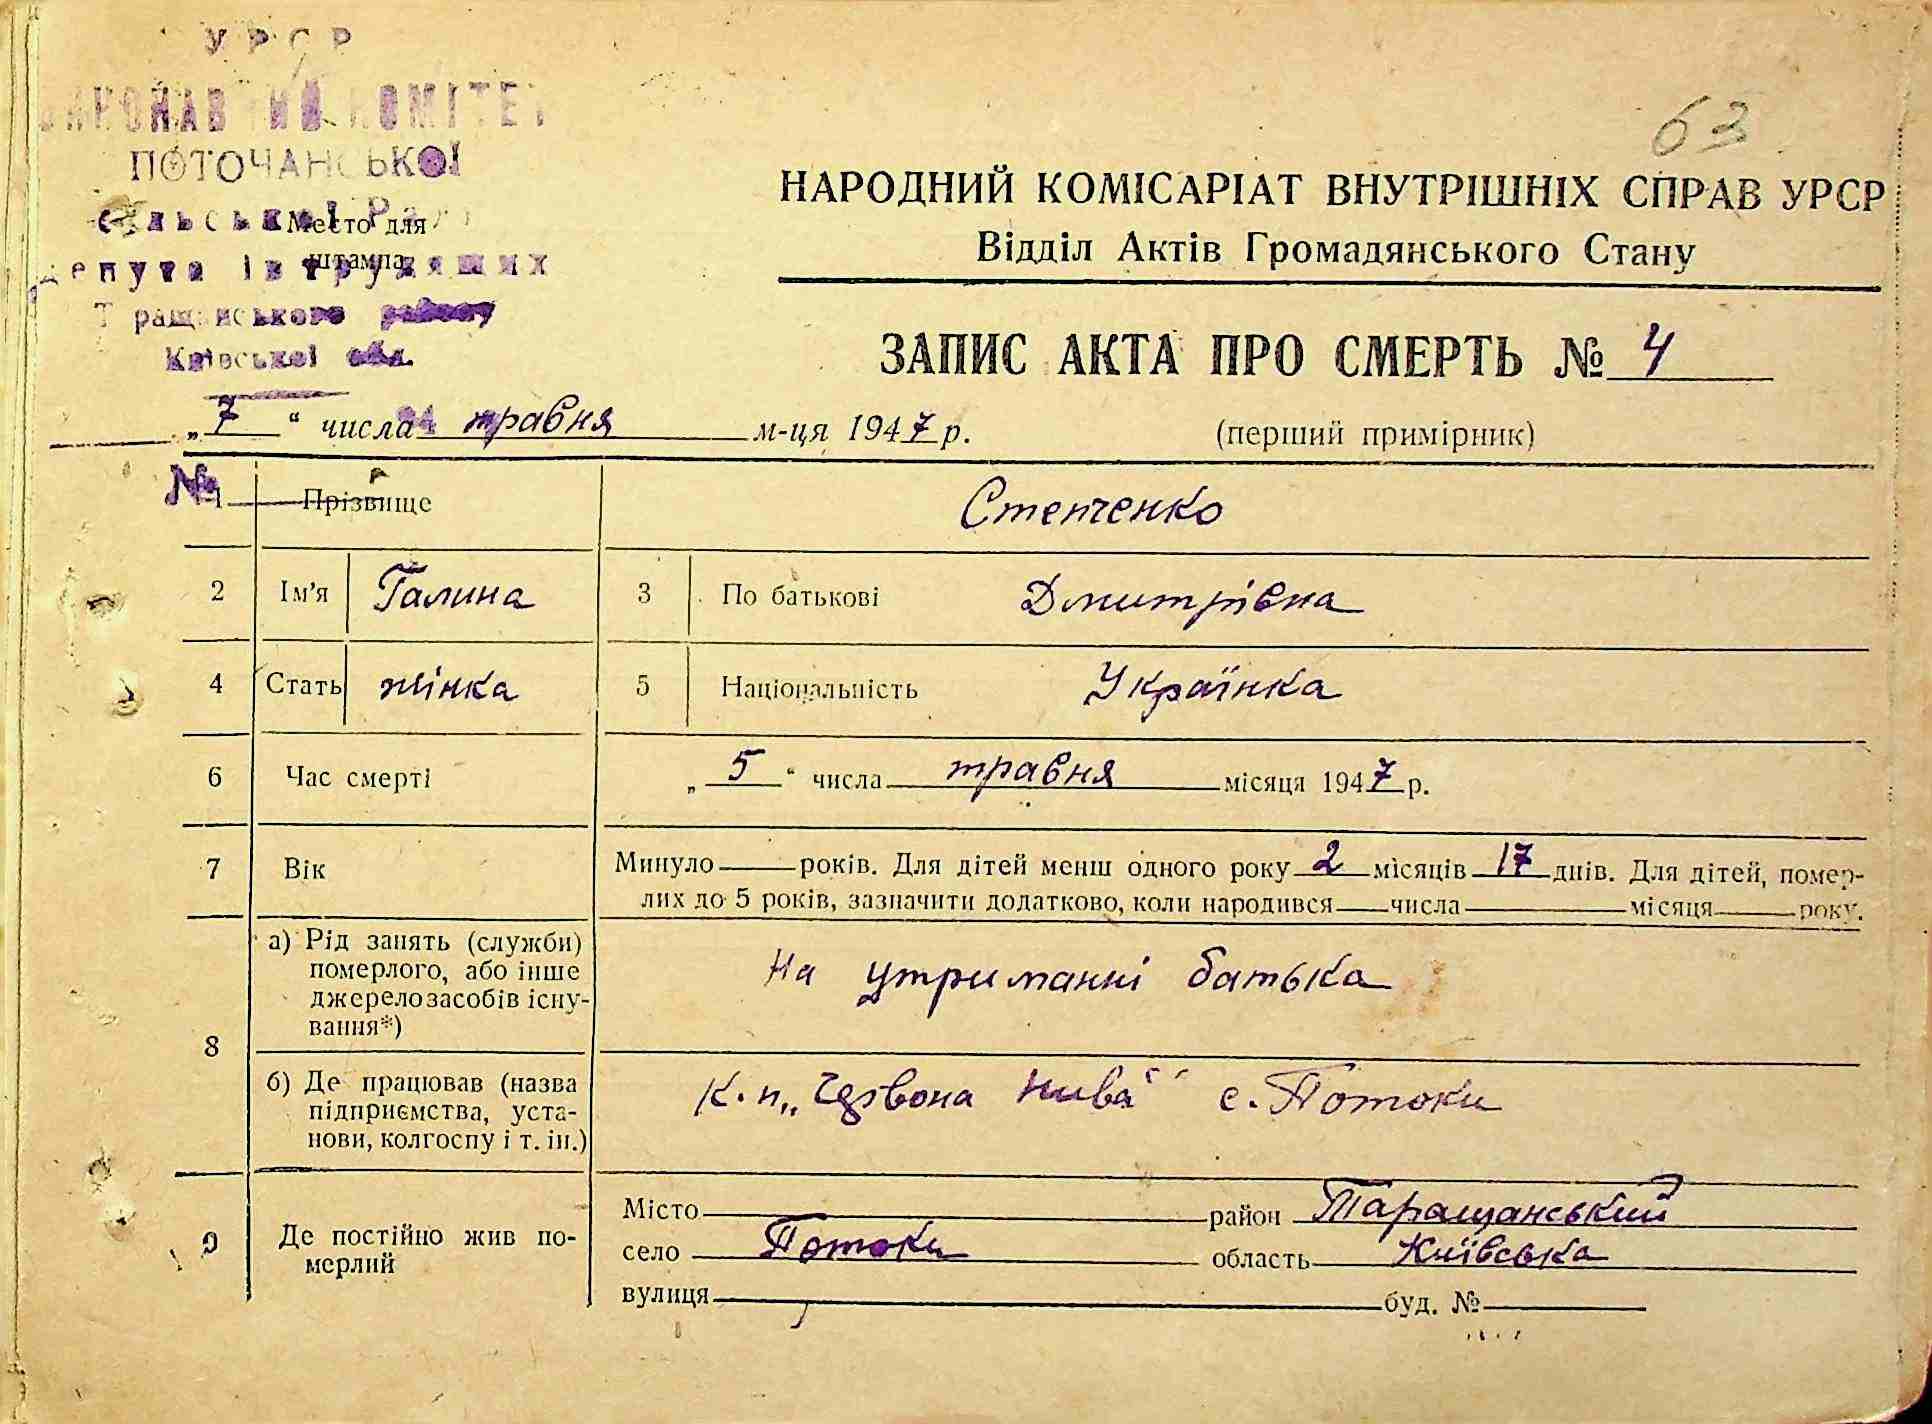 УРСР
ВИКОНАВЧИЙ КОМІТЕТ
ПОТОЧАНСЬКОЇ
сільської Ради
Место для
штампа
депутатів трудящих
Таращанського району
Київської обл.
63
НАРОДНИЙ КОМІСАРІАТ ВНУТРІШНІХ СПРАВ УРСР
Відділ Актів Громадянського Стану
ЗАПИС АКТА ПРО СМЕРТЬ № 4
„7“ числа травня м-ця 1947 р. (перший примірник)
№
1 Прізвище Степченко
2 Ім'я Галина 3 По батькові Дмитрівна
4 Стать жінка 5 Національність Українка
6 Час смерті „5“ числа травня місяця 1947 р.
7 Вік Минуло років. Для дітей менш одного року 2 місяців 17 днів. Для дітей, помер-
лих до 5 років, зазначити додатково, коли народився числа місяця року.
8 а) Рід занять (служби)
померлого, або інше
джерело засобів існу-
вання*)
На утриманні батька
б) Де працював (назва
підприємства, уста-
нови, колгоспу і т. ін.)
К. п „Червона Нива“ с. Потоки
9 Де постійно жив по-
мерлий
Місто район Таращанський
село Потоки область Київська
вулиця буд. №